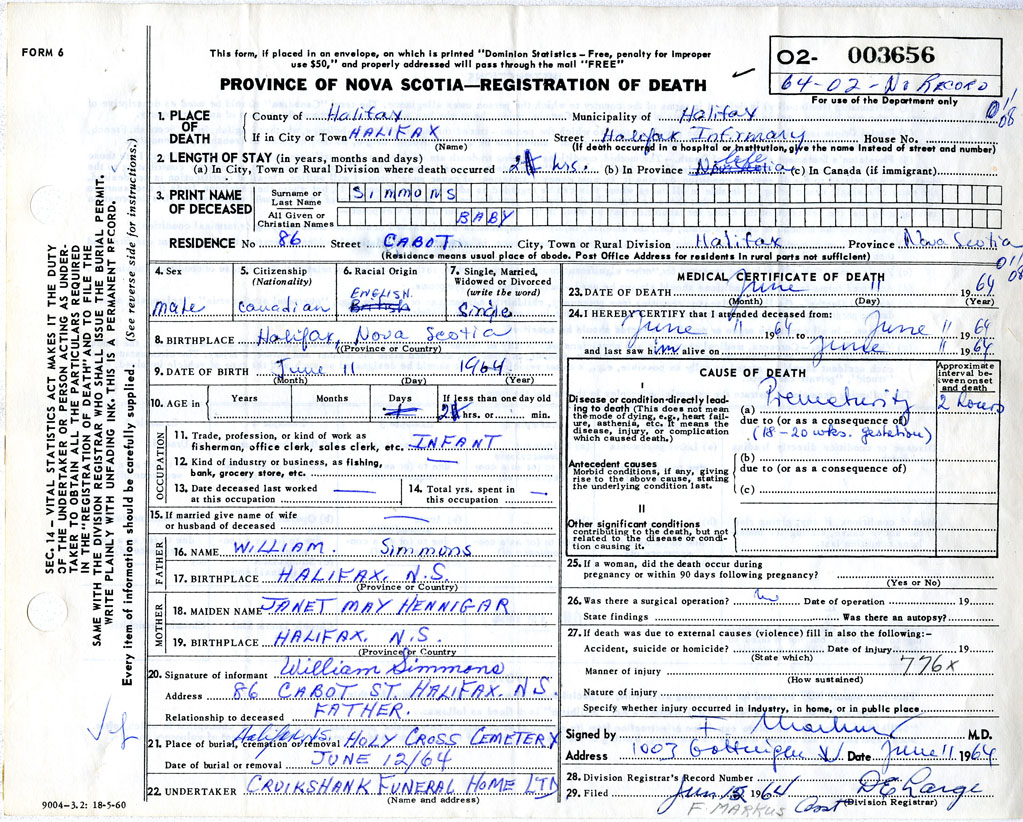 FORM 6
This form, if placed in an envelope, on which is printed "Dominion Statistics – Free, penalty for improper
use $50," and properly addressed will pass through the mail "FREE"
PROVINCE OF NOVA SCOTIA—REGISTRATION OF DEATH
02- 003656
64-02-No Record
For use of the Department only
011
08
SEC. 14 – VITAL STATISTICS ACT MAKES IT THE DUTY
OF THE UNDERTAKER OR PERSON ACTING AS UNDER-
TAKER TO OBTAIN ALL THE PARTICULARS REQUIRED
IN THE "REGISTRATION OF DEATH" AND TO FILE THE
SAME WITH THE DIVISION REGISTRAR WHO SHALL ISSUE THE BURIAL PERMIT.
WRITE PLAINLY WITH UNFADING INK. THIS IS A PERMANENT RECORD.
Every item of information should be carefully supplied. (See reverse side for instructions.)
1. PLACE OF DEATH
County of Halifax Municipality of Halifax
If in City or Town HALIFAX Street Halifax Infirmary House No.
(Name) (If death occurred in a hospital or institution, give the name instead of street and number)
2. LENGTH OF STAY (in years, months and days)
(a) In City, Town or Rural Division where death occurred 2 hrs. (b) In Province life Nova Scotia (c) In Canada (if immigrant)
3. PRINT NAME OF DECEASED
Surname or Last Name SIMMONS
All Given or Christian Names BABY
RESIDENCE No 86 Street CABOT City, Town or Rural Division Halifax Province Nova Scotia
(Residence means usual place of abode. Post Office Address for residents in rural parts not sufficient)
011
08
4. Sex
male
5. Citizenship
(Nationality)
Canadian
6. Racial Origin
ENGLISH
British
7. Single, Married,
Widowed or Divorced
(write the word)
Single
8. BIRTHPLACE Halifax, Nova Scotia
(Province or Country)
9. DATE OF BIRTH June 11 1964
(Month) (Day) (Year)
10. AGE in
Years Months Days If less than one day old
2 hrs. or min.
OCCUPATION
11. Trade, profession, or kind of work as
fisherman, office clerk, sales clerk, etc. INFANT
12. Kind of industry or business, as fishing,
bank, grocery store, etc.
13. Date deceased last worked
at this occupation
14. Total yrs. spent in
this occupation
15. If married give name of wife
or husband of deceased
FATHER
16. NAME WILLIAM. Simmons
17. BIRTHPLACE HALIFAX, N.S.
(Province or Country)
MOTHER
18. MAIDEN NAME JANET MAY HENNIGAR
19. BIRTHPLACE HALIFAX, N.S.
(Province or Country
20. Signature of informant William Simmons
Address 86 CABOT ST. HALIFAX. N.S.
Relationship to deceased FATHER.
21. Place of burial, cremation or removal Halifax N.S. HOLY CROSS CEMETERY
Date of burial or removal JUNE 12/64
22. UNDERTAKER CRUIKSHANK FUNERAL HOME LTD
(Name and address)
9004–3.2: 18-5-60
MEDICAL CERTIFICATE OF DEATH
23. DATE OF DEATH June 11 1964
(Month) (Day) (Year)
24. I HEREBY CERTIFY that I attended deceased from:
June 11 1964 June 11 1964
and last saw him alive on to June 11 1964
CAUSE OF DEATH
Approximate
interval be-
tween onset
and death
I
Disease or condition directly lead-
ing to death (This does not mean
the mode of dying, e.g., heart fail-
ure, asthenia, etc. It means the
disease, injury, or complication
which caused death.)
(a) Prematurity 2 hours
due to (or as a consequence of)
(18-20 wks. gestation)
Antecedent causes
Morbid conditions, if any, giving
rise to the above cause, stating
the underlying condition last.
(b)
due to (or as a consequence of)
(c)
II
Other significant conditions
contributing to the death, but not
related to the disease or condi-
tion causing it.
25. If a woman, did the death occur during
pregnancy or within 90 days following pregnancy?
(Yes or No)
26. Was there a surgical operation? no Date of operation 19
State findings Was there an autopsy?
27. If death was due to external causes (violence) fill in also the following:–
Accident, suicide or homicide? Date of injury 19
(State which)
776x
Manner of injury
(How sustained)
Nature of injury
Specify whether injury occurred in industry, in home, or in public place
Signed by F Markus M.D.
Address 1003 Gottingen St Date June 11 1964
28. Division Registrar's Record Number
29. Filed Jun 15 1964 D E Large
(Division Registrar)
F. MARKUS